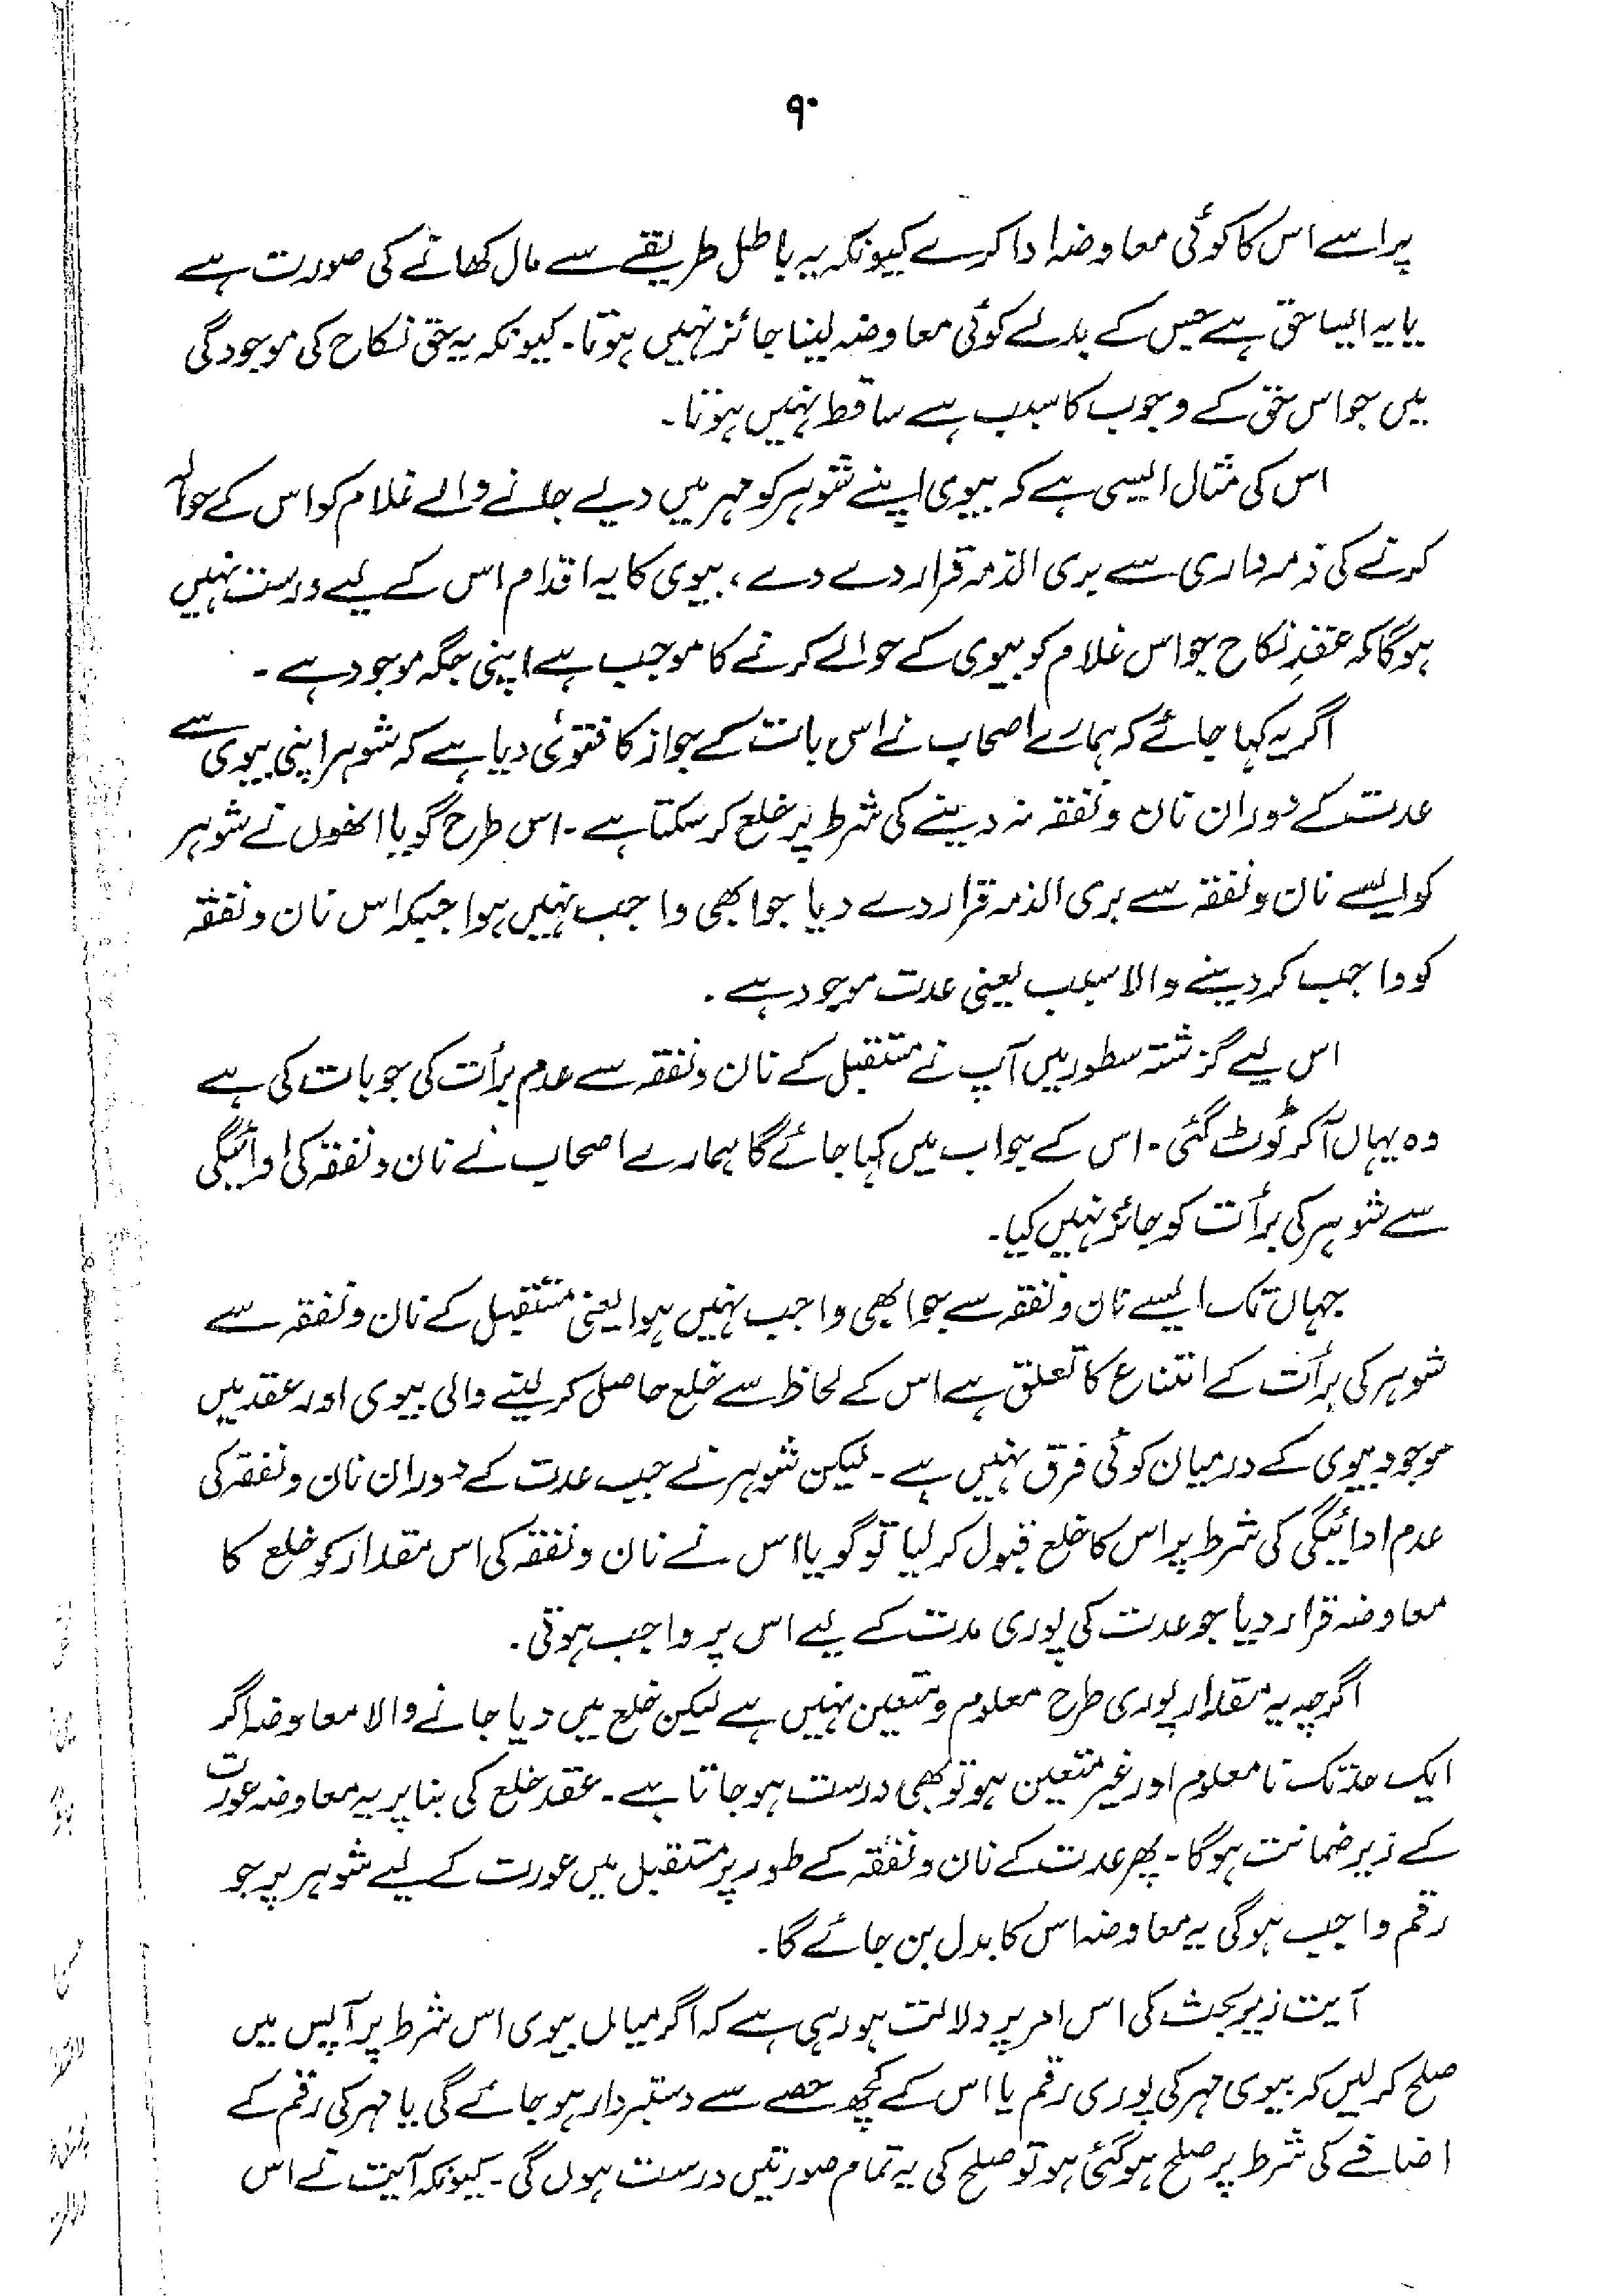 ۹۰
پر اسے اس کا کوئی معاوضہ ادا کرے کیونکہ یہ باطل طریقے سے مال کھانے کی صورت ہے
یا یہ ایسا حق ہے جس کے بدلے کوئی معاوضہ لینا جائز نہیں ہوتا۔ کیونکہ یہ حق نکاح کی موجودگی
میں جو اس حق کے وجوب کا سبب ہے ساقط نہیں ہوتا۔
اس کی مثال ایسی ہے کہ بیوی اپنے شوہر کو مہر میں دیے جانے والے غلام کو اس کے حوالے
کرنے کی ذمہ داری سے بری الذمہ قرار دے دے، بیوی کا یہ اقدام اس کے لیے درست نہیں
ہوگا کہ عقدِ نکاح جو اس غلام کو بیوی کے حوالے کرنے کا موجب ہے اپنی جگہ موجود ہے۔
اگر یہ کہا جائے کہ ہمارے اصحاب نے اس بات کے جواز کا فتویٰ دیا ہے کہ شوہر اپنی بیوی سے
عدت کے دوران نان و نفقہ نہ دینے کی شرط پر خلع کر سکتا ہے۔ اس طرح گویا انھوں نے شوہر
کو ایسے نان و نفقہ سے بری الذمہ قرار دے دیا جو ابھی واجب نہیں ہوا جبکہ اس نان و نفقہ
کو واجب کر دینے والا سبب یعنی عدت موجود ہے۔
اس لیے گزشتہ سطور میں آپ نے مستقبل کے نان و نفقہ سے عدم برأت کی جو بات کی ہے
وہ یہاں آکر ٹوٹ گئی۔ اس کے جواب میں کہا جائے گا ہمارے اصحاب نے نان و نفقہ کی ادائیگی
سے شوہر کی برأت کو جائز نہیں کیا۔
جہاں تک ایسے نان و نفقہ سے جو ابھی واجب نہیں ہوا یعنی مستقبل کے نان و نفقہ سے
شوہر کی برأت کے امتناع کا تعلق ہے اس کے لحاظ سے خلع حاصل کر لینے والی بیوی اور عقد میں
موجود بیوی کے درمیان کوئی فرق نہیں ہے۔ لیکن شوہر نے جب عدت کے دوران نان و نفقہ کی
عدم ادائیگی کی شرط پر اس کا خلع قبول کر لیا تو گویا اس نے نان و نفقہ کی اس مقدار کو خلع کا
معاوضہ قرار دیا جو عدت کی پوری مدت کے لیے اس پر واجب ہوتی۔
اگرچہ یہ مقدار پوری طرح معلوم و متعین نہیں ہے لیکن خلع میں دیا جانے والا معاوضہ اگر
ایک حد تک نا معلوم اور غیر متعین ہو تو بھی درست ہو جاتا ہے۔ عقد خلع کی بنا پر یہ معاوضہ عورت
کے زیر ضمانت ہوگا۔ پھر عدت کے نان و نفقہ کے طور پر مستقبل میں عورت کے لیے شوہر پر جو
رقم واجب ہوگی یہ معاوضہ اس کا بدل بن جائے گا۔
آیت زیر بحث کی اس امر پر دلالت ہو رہی ہے کہ اگر میاں بیوی اس شرط پر آپس میں
صلح کر لیں کہ بیوی مہر کی پوری رقم یا اس کے کچھ حصے سے دستبردار ہو جائے گی یا مہر کی رقم کے
اضافے کی شرط پر صلح ہو گئی ہو تو صلح کی یہ تمام صورتیں درست ہوں گی۔ کیونکہ آیت نے اس